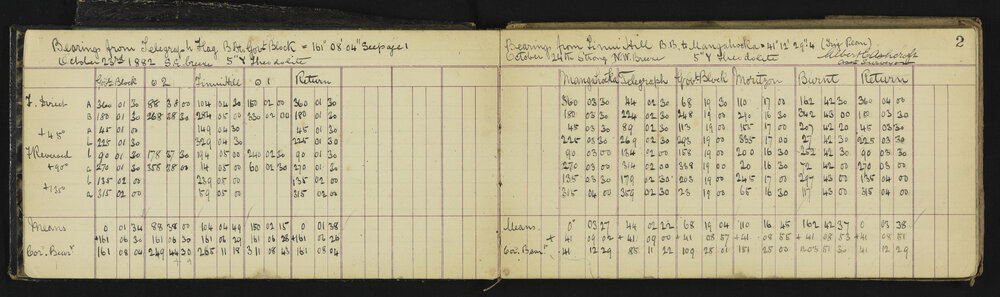 Bearings from Telegraph Flag B.B. to Govt Block = 161° 08' 04" See page 1
October 23rd 1882 S.E. breeze 5" Y Theodolite
Govt Block ⊙ 2 Tinui Hill ⊙ 1 Return
F. Direct A 360 01 30 88 38 00 104 04 30 150 02 00 360 01 30
B 180 01 30 268 38 30 284 05 00 330 02 00 180 01 30
+ 45° A 45 01 00 149 04 30 45 01 30
L 225 01 30 329 04 30 225 01 30
F Reversed L 90 01 30 178 37 30 194 05 00 240 02 30 90 01 30
+ 90° a 270 01 30 358 38 00 14 05 00 60 02 30 270 01 30
+ 135 L 135 02 00 239 05 00 135 02 00
a 315 02 00 59 05 00 315 02 00
Means 0 01 34 88 38 00 104 04 49 150 02 15 0 01 38
+161 06 30 161 06 30 161 06 29 161 06 28 +161 06 26
Cor. Bear'n 161 08 04 249 44 30 265 11 18 311 08 43 161 08 04
2
Bearings from Tinui Hill B.B. to Mangahooka = 41° 12' 29".4
October 24th Strong N.W. Breeze 5" Y Theodolite
Telegraph Govt Block Moritzon Burnt Return
360 03 30 44 02 30 68 19 30 110 17 00 162 42 30 360 04 00
180 03 30 224 02 30 248 19 00 290 16 30 342 43 00 180 03 30
45 03 30 89 02 30 113 19 00 155 17 00 207 42 30 45 03 30
225 03 30 269 02 30 293 19 00 335 17 00 27 42 30 225 03 30
90 03 00 134 02 00 158 19 00 200 16 30 252 42 30 90 03 30
270 03 00 314 02 00 338 19 00 20 16 30 72 42 00 270 03 30
135 03 30 179 02 30 203 19 00 245 17 00 297 43 00 135 04 00
315 04 00 359 02 30 23 19 00 65 16 30 117 43 00 315 04 00
Means. 0° 03 27 44 02 22 68 19 04 110 16 45 162 42 37 0 03 38
+ 41 09 02 + 41 09 00 + 41 08 57 + 41 08 55 + 41 08 53 + 41 08 51
Cor. Bear'n 41 12 29 85 11 22 109 28 01 151 25 00 203 51 30 41 12 29